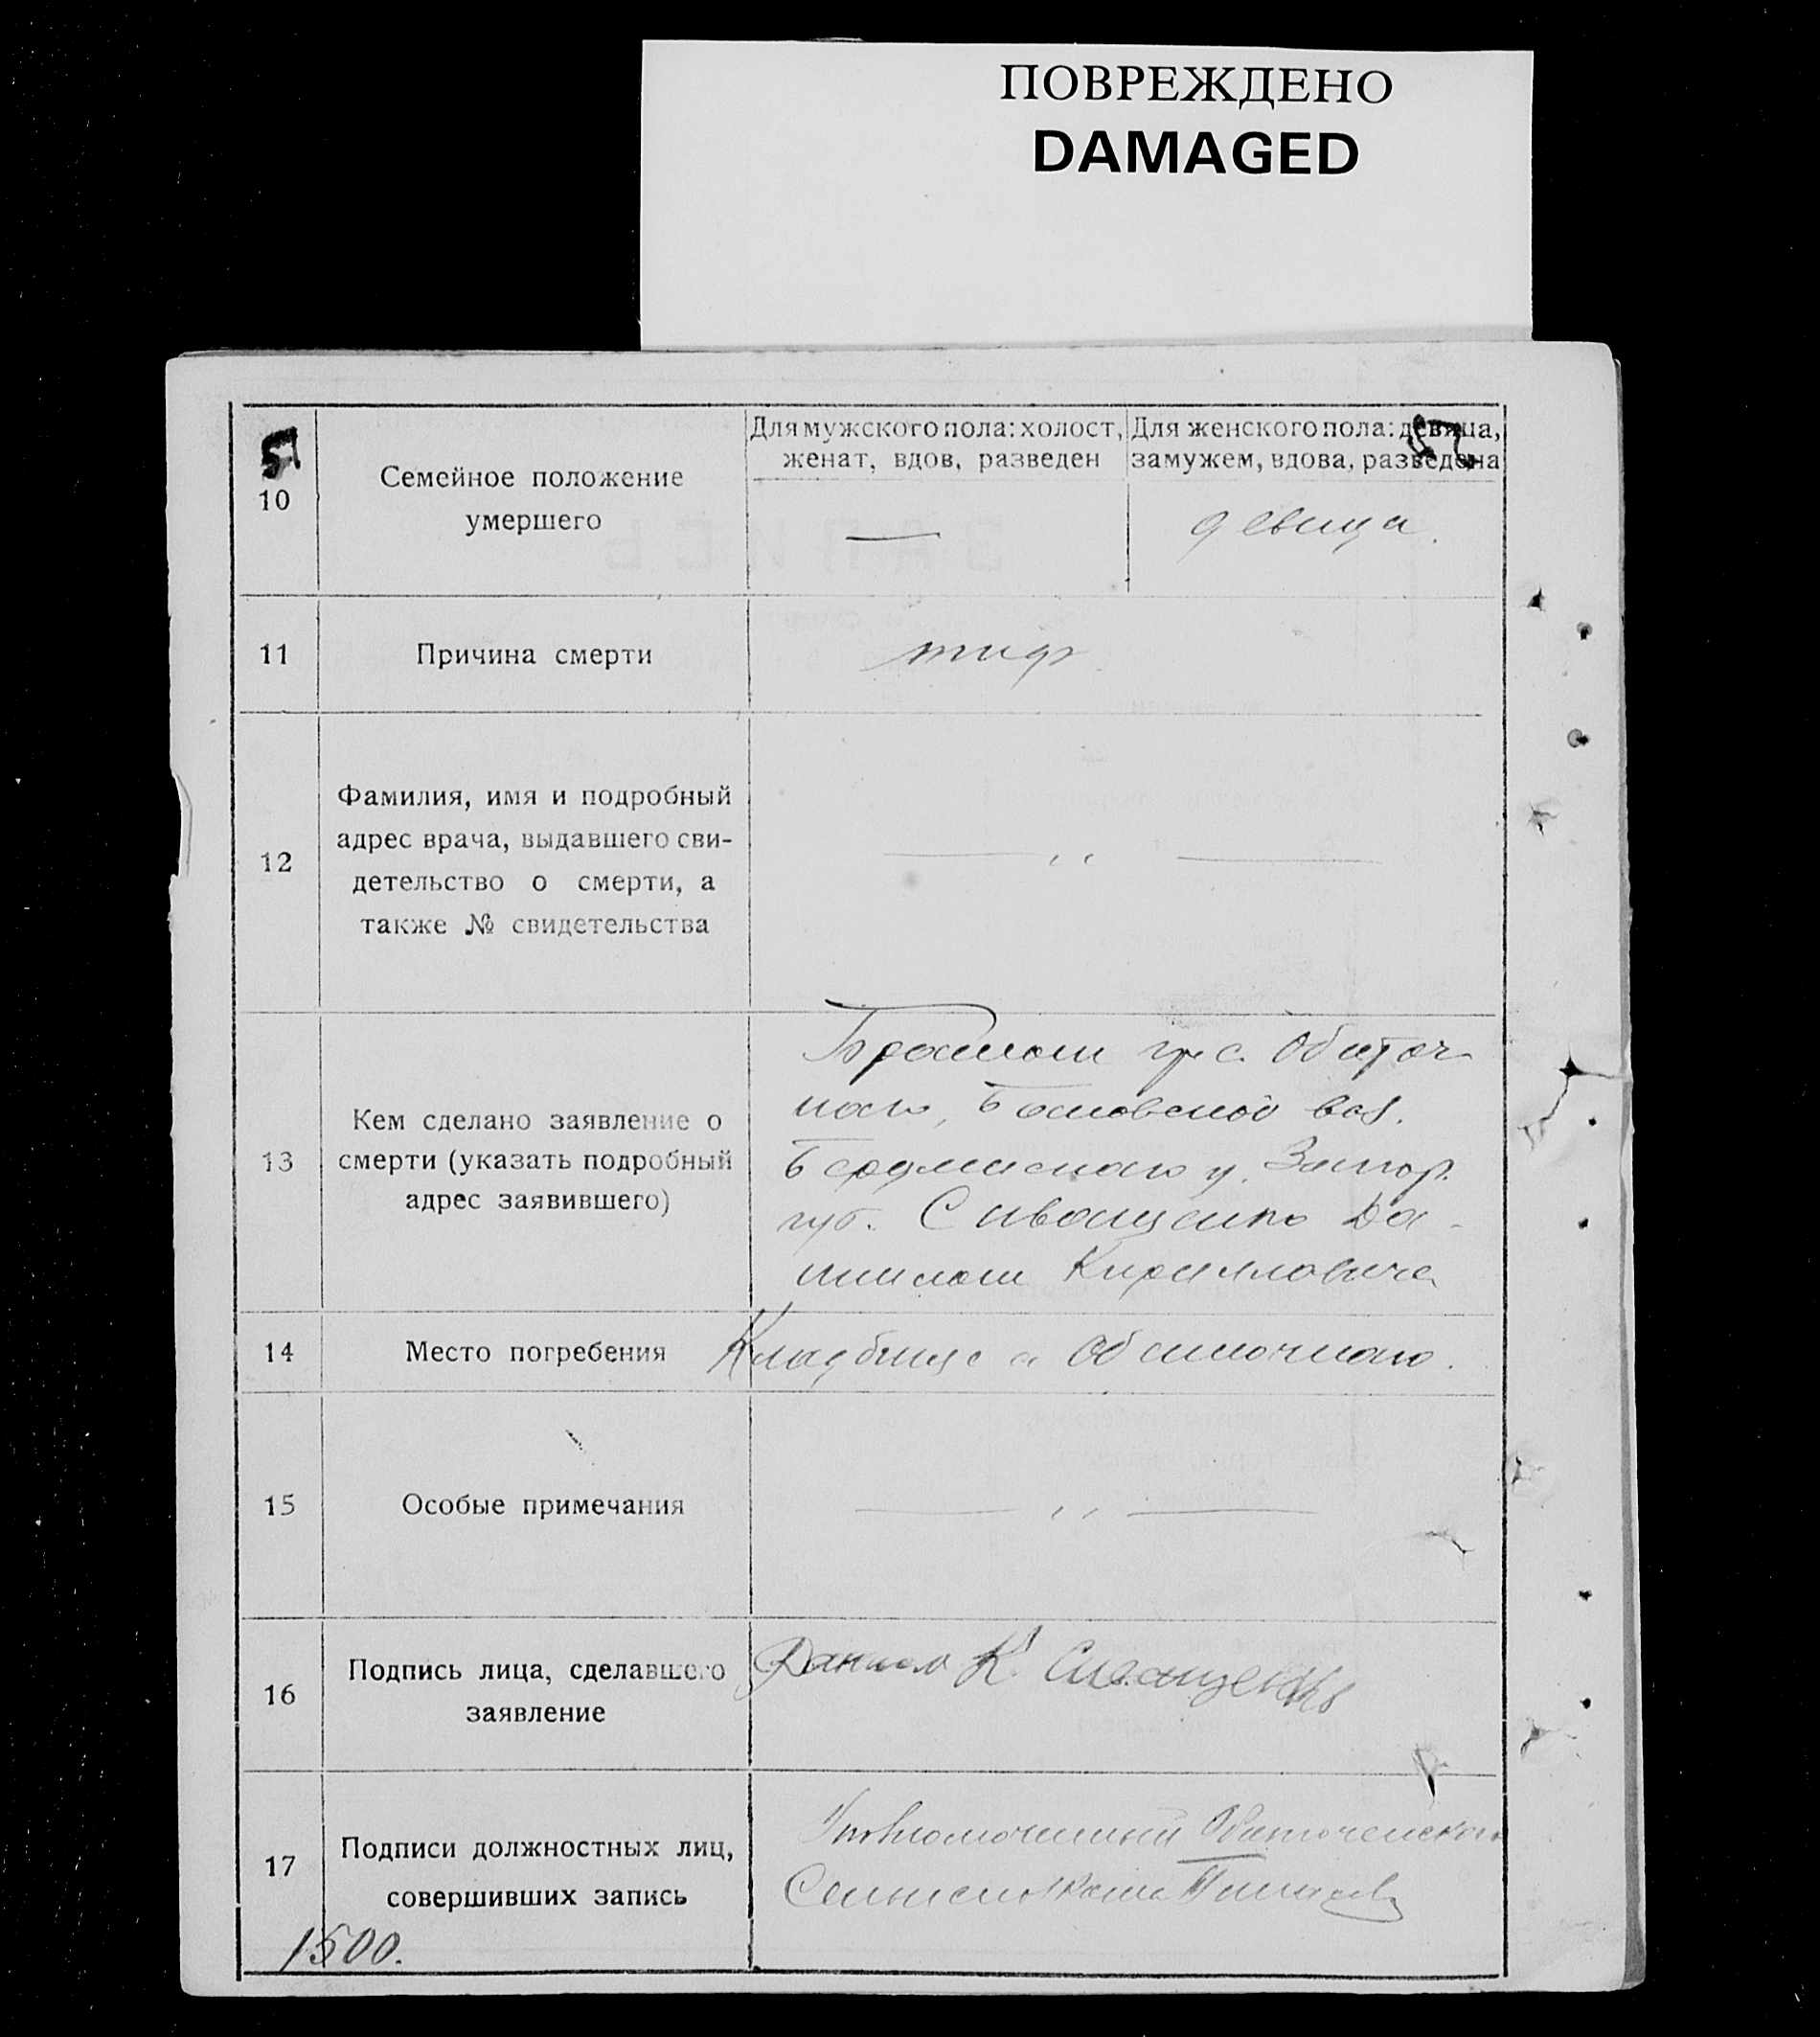 ПОВРЕЖДЕНО
DAMAGED
51
10
Семейное положение
умершего
Для мужского пола: холост,
женат, вдов, разведен
Для женского пола: девица,
замужем, вдова, разведена
—
девица.
11
Причина смерти
тиф
12
Фамилия, имя и подробный
адрес врача, выдавшего сви-
детельство о смерти, а
также № свидетельства
— „ —
13
Кем сделано заявление о
смерти (указать подробный
адрес заявившего)
Братом гр. с. Обиточ-
ного, вол.
Бердянского у. Запор.
губ. Сиващенко Да-
нилом Кириллович
14
Место погребения
Кладбище с. Обиточного.
15
Особые примечания
— „ —
16
Подпись лица, сделавшего
заявление
Данило К. Сиващенко
17
Подписи должностных лиц,
совершивших запись
Уполномоченный Обиточенского
1500.